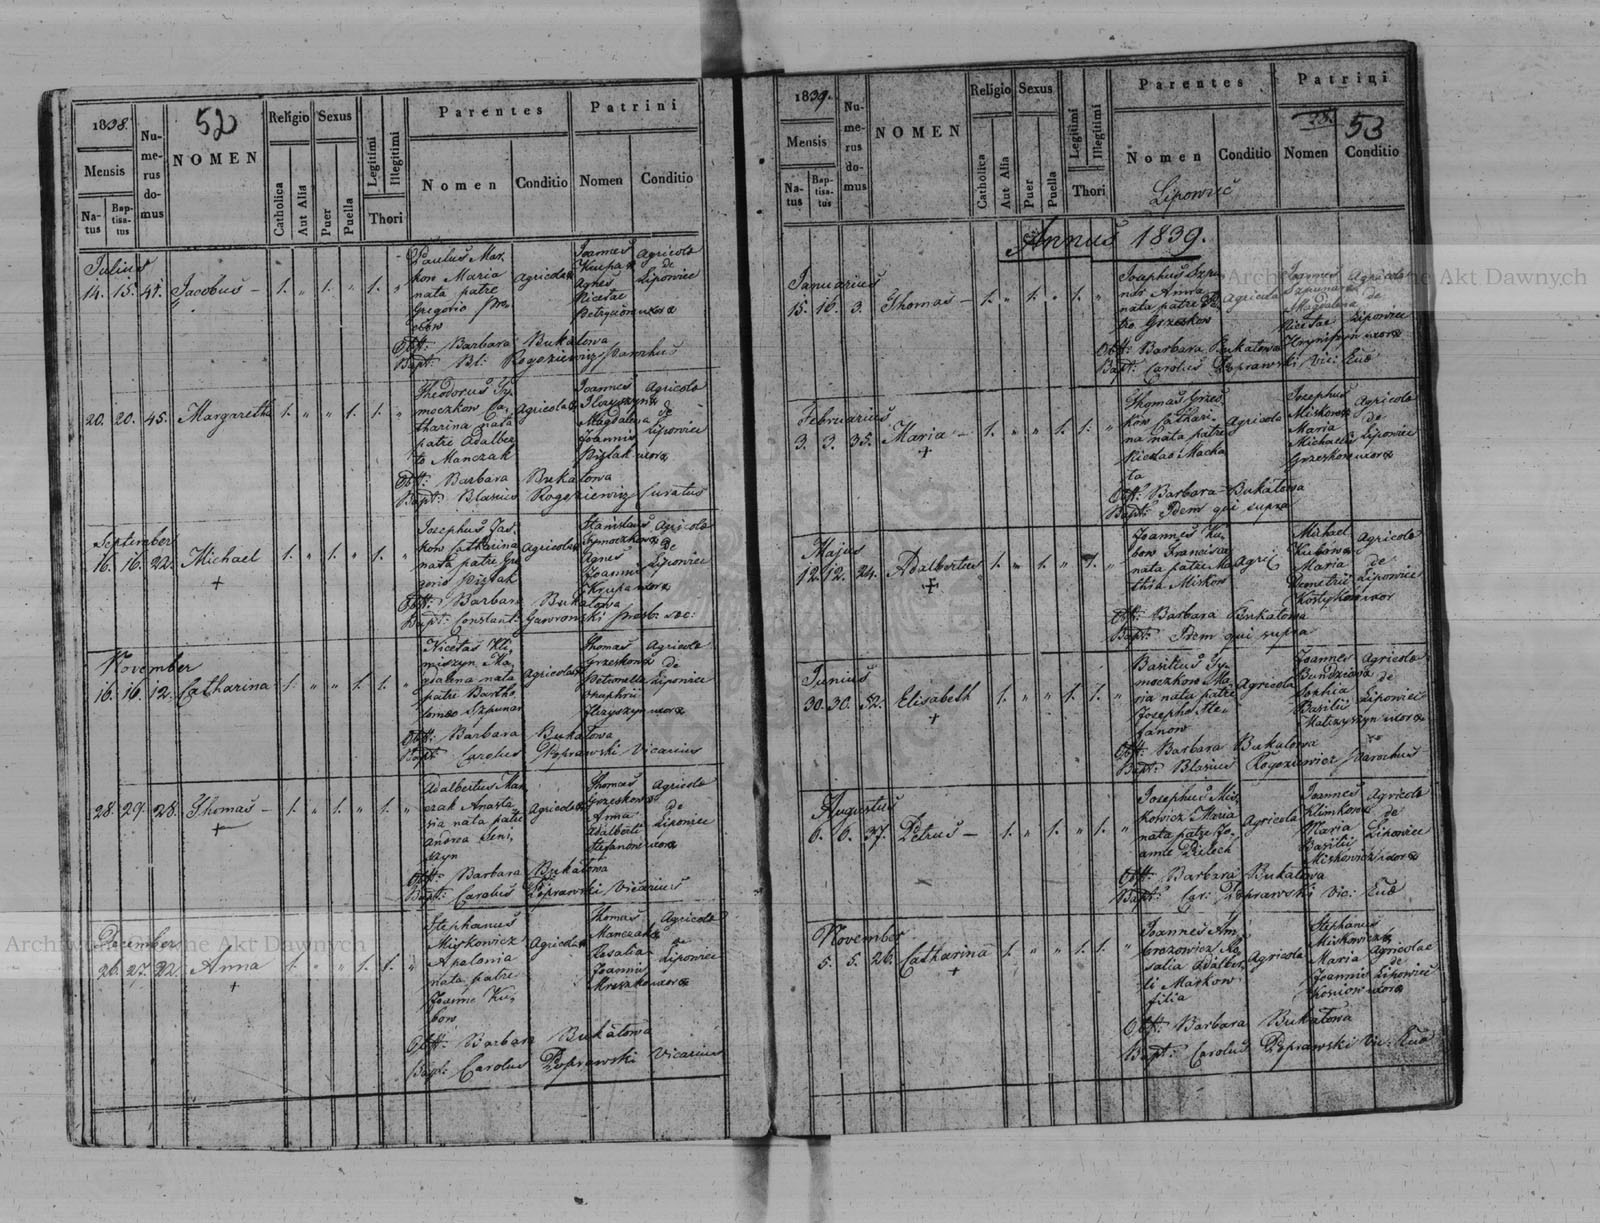 52
1838.
Mensis
Natus
Baptisatus
Numerus domus
NOMEN
Religio
Catholica
Aut Alia
Sexus
Puer
Puella
Legitimi
Illegitimi
Thori
Parentes
Nomen
Conditio
Patrini
Nomen
Conditio
Julius
14. 15. 41. Jacobus
Paulus Mar
kow Maria
nata patre
Gregorio
Agricolae
Joannes
Krupa
Agnes
Nicetae
uxor
Agricola
de
Lipowiec
Obst: Barbara Bukatowa
Bapt: Bl: Rogoziewicz Parochus
20. 20. 45. Margaretha
Theodorus Ty
moczkow Ca
tharina nata
patre Adalber
to Manczak
Agricolae
Joannes
Ilczyszyn
Magdalena
Joannis
Pizlak uxor
Agricola
de
Lipowiec
Obst: Barbara Bukatowa
Bapt: Blasius Rogoziewicz Curatus
September
16. 16. 22. Michael
Josephus Jas
kow Catharina
nata patre Gre
gorio Pizlak
Agricolae
Stanislaus
Tymoczkow
Agnes
Joannis
Krupa uxor
Agricola
de
Lipowiec
Obst: Barbara Bukatowa
Bapt: Constant: Gawronski
November
16. 16. 12. Catharina
Nicetas Kli
miszyn Ma
gdalena nata
patre Bartho
lomeo Szpunar
Agricolae
Thomas
Grzeskow
Petronella
Onuphrii
Ilczyszyn uxor
Agricola
de
Lipowiec
Obst: Barbara Bukatowa
Bapt: Carolus Poprawski Vicarius
28. 29. 28. Thomas
Adalbertus Man
czak Anasta
sia nata patre
Andrea
Agricolae
Thomas
Grzeskow
Anna
Adalberti
Stefanow uxor
Agricola
de
Lipowiec
Obst: Barbara Bukatowa
Bapt: Carolus Poprawski Vicarius
December
26. 27. 32. Anna
Stephanus
Miskowicz
Apolonia
nata patre
Joanne Ku
bow
Agricolae
Thomas
Manczak
Rosalia
Joannis
Mreszko uxor
Agricola
de
Lipowiec
Obst: Barbara Bukatowa
Bapt: Carolus Poprawski Vicarius
53
1839.
Mensis
Natus
Baptisatus
Numerus domus
NOMEN
Religio
Catholica
Aut Alia
Sexus
Puer
Puella
Legitimi
Illegitimi
Thori
Parentes
Nomen
Conditio
Patrini
Nomen
Conditio
Lipowiec
Annus 1839.
Januarius
15. 16. 3. Thomas
Josephus Szpu
nar Anna
nata patre
Grzeskow
Agricola
Joannes
Szpunar
Magdalena
Nicetae
uxor
Agricola
de
Lipowiec
Obst: Barbara Bukatowa
Bapt: Carolus Poprawski Vic:
Februarius
3. 3. 35. Maria
Thomas Grzes
kow Cathari
na nata patre
Nicolao Macha
ta
Agricola
Josephus
Miskowicz
Maria
Michaelis
Grzeskow uxor
Agricola
de
Lipowiec
Obst: Barbara Bukatowa
Bapt: Idem qui supra
Majus
12. 12. 24. Adalbertus
Joannes Ku
bow Francisca
nata patre Ma
thia Miskow
Agric:
Michael
Kubow
Maria
Demetrii
Kostykow uxor
Agricola
de
Lipowiec
Obst: Barbara Bukatowa
Bapt: Idem qui supra
Junius
30. 30. 52. Elisabeth
Basilius Ty
moczkow Ma
ria nata patre
Josepho Ste
fanow
Agricola
Joannes
Sophia
Basilii
Matczyszyn uxor
Agricola
de
Lipowiec
Obst: Barbara Bukatowa
Bapt: Blasius Rogoziewicz Parochus
Augustus
6. 6. 37. Petrus
Josephus Mis
kowicz Maria
nata patre Jo
anne
Agricola
Joannes
Klimkow
Maria
Basilii
Miskowicz uxor
Agricola
de
Lipowiec
Obst: Barbara Bukatowa
Bapt: Car: Poprawski Vic:
November
5. 5. 26. Catharina
Joannes Am
brozowicz Ro
salia Adalber
ti Markow
filia
Agricola
Stephanus
Miskowicz
Maria
Joannis
Kosiow uxor
Agricolae
de
Lipowiec
Obst: Barbara Bukatowa
Bapt: Carolus Poprawski Vic:
Archiwum Główne Akt Dawnych
Archiwum Główne Akt Dawnych